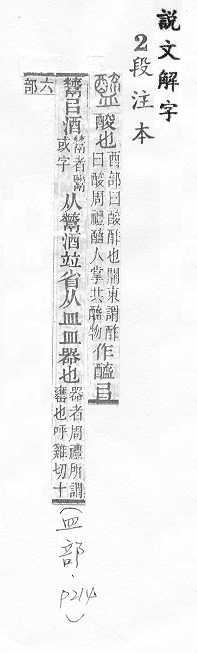 說文解字
2段注本
醯 酸也酉部曰酸酢也關東謂酢曰酸周禮醯人掌共醯物作醯㠯
𩱋㠯酒𩱋者鬻或字从𩱋酒竝省从皿皿器也器者周禮所謂罋也呼雞切十
六部
(皿部，p214)